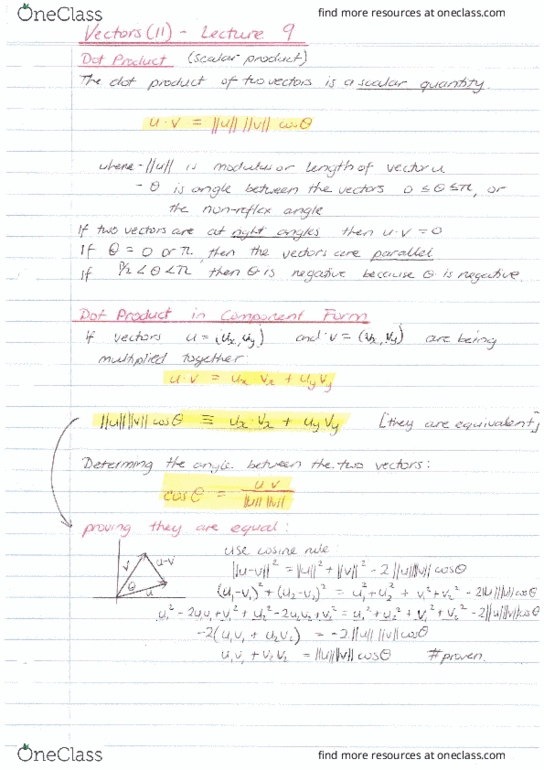 OneClass
find more resources at oneclass.com
Vectors (11) - Lecture 9
Dot Product (scalar product)
The dot product of two vectors is a scalar quantity.
u·v = ||u|| ||v|| cosθ
where - ||u|| is modulus or length of vector u
- θ is angle between the vectors 0 ≤ θ ≤ π, or
the non-reflex angle
If two vectors are at right angles then u·v = 0
If θ = 0 or π, then the vectors are parallel
If π/2 < θ < π then θ is negative because θ is negative.
Dot Product in Component Form
If vectors u = (ux, uy) and v = (vx, vy) are being
multiplied together:
u·v = ux vx + uy vy
||u|| ||v|| cosθ ≡ ux·vx + uy vy [they are equivalent]
Determining the angle between the two vectors:
cosθ = u v / ||u|| ||v||
proving they are equal:
use cosine rule:
v u-v θ u
||u-v||² = ||u||² + ||v||² - 2||u|| ||v|| cosθ
(u₁-v₁)² + (u₂-v₂)² = u₁² + u₂² + v₁² + v₂² - 2||u|| ||v|| cosθ
u₁² - 2u₁v₁ + v₁² + u₂² - 2u₂v₂ + v₂² = u₁² + u₂² + v₁² + v₂² - 2||u|| ||v|| cosθ
-2(u₁v₁ + u₂v₂) = -2||u|| ||v|| cosθ
u₁v₁ + v₂v₂ = ||u|| ||v|| cosθ #proven
OneClass
find more resources at oneclass.com